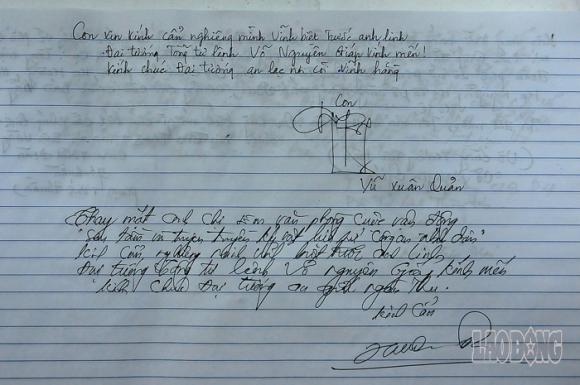 Con xin kính cẩn nghiêng mình vĩnh biệt trước anh linh
Đại tướng Tổng tư lệnh Võ Nguyên Giáp kính mến!
Kính chúc Đại tướng an lạc nơi cõi vĩnh hằng
Con
Vũ Xuân Quản
Thay mặt anh chị em văn phòng cuộc vận động
"Sưu tầm và tuyên truyền kỷ vật lịch sử Công an nhân dân"
kính cẩn nghiêng mình vĩnh biệt trước anh linh
Đại tướng Tổng tư lệnh Võ Nguyên Giáp kính mến
kính chúc Đại tướng an nghỉ ngàn thu.
kính cẩn
LAO ĐỘNG